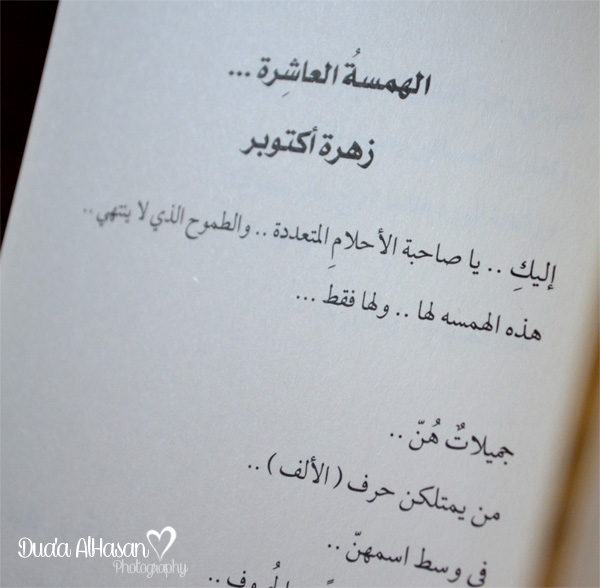 الهمسةُ العاشِرة ...
زهرة أكتوبر
إليكِ .. يا صاحبة الأحلامِ المتعددة .. والطموح الذي لا ينتهي ..
هذه الهمسه لها .. ولها فقط ...
جميلاتٌ هُنّ ..
من يمتلكن حرف ( الألف ) ..
في وسط اسمهنّ ..
Duda AlHasan
Photography